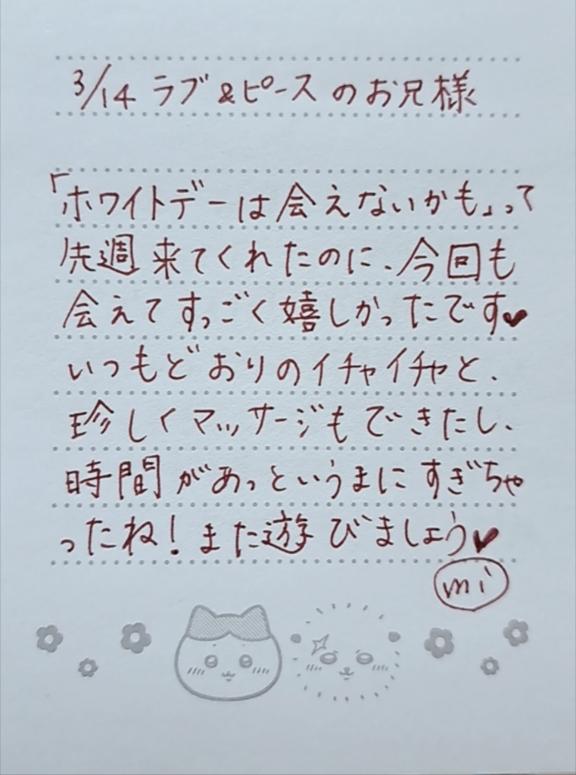 3/14 ラブ&ピースのお兄様
「ホワイトデーは会えないかも」って
先週来てくれたのに、今回も
会えてすっごく嬉しかったです♥
いつもどおりのイチャイチャと、
珍しくマッサージもできたし、
時間があっというまにすぎちゃ
ったね!また遊びましょう♥
mi